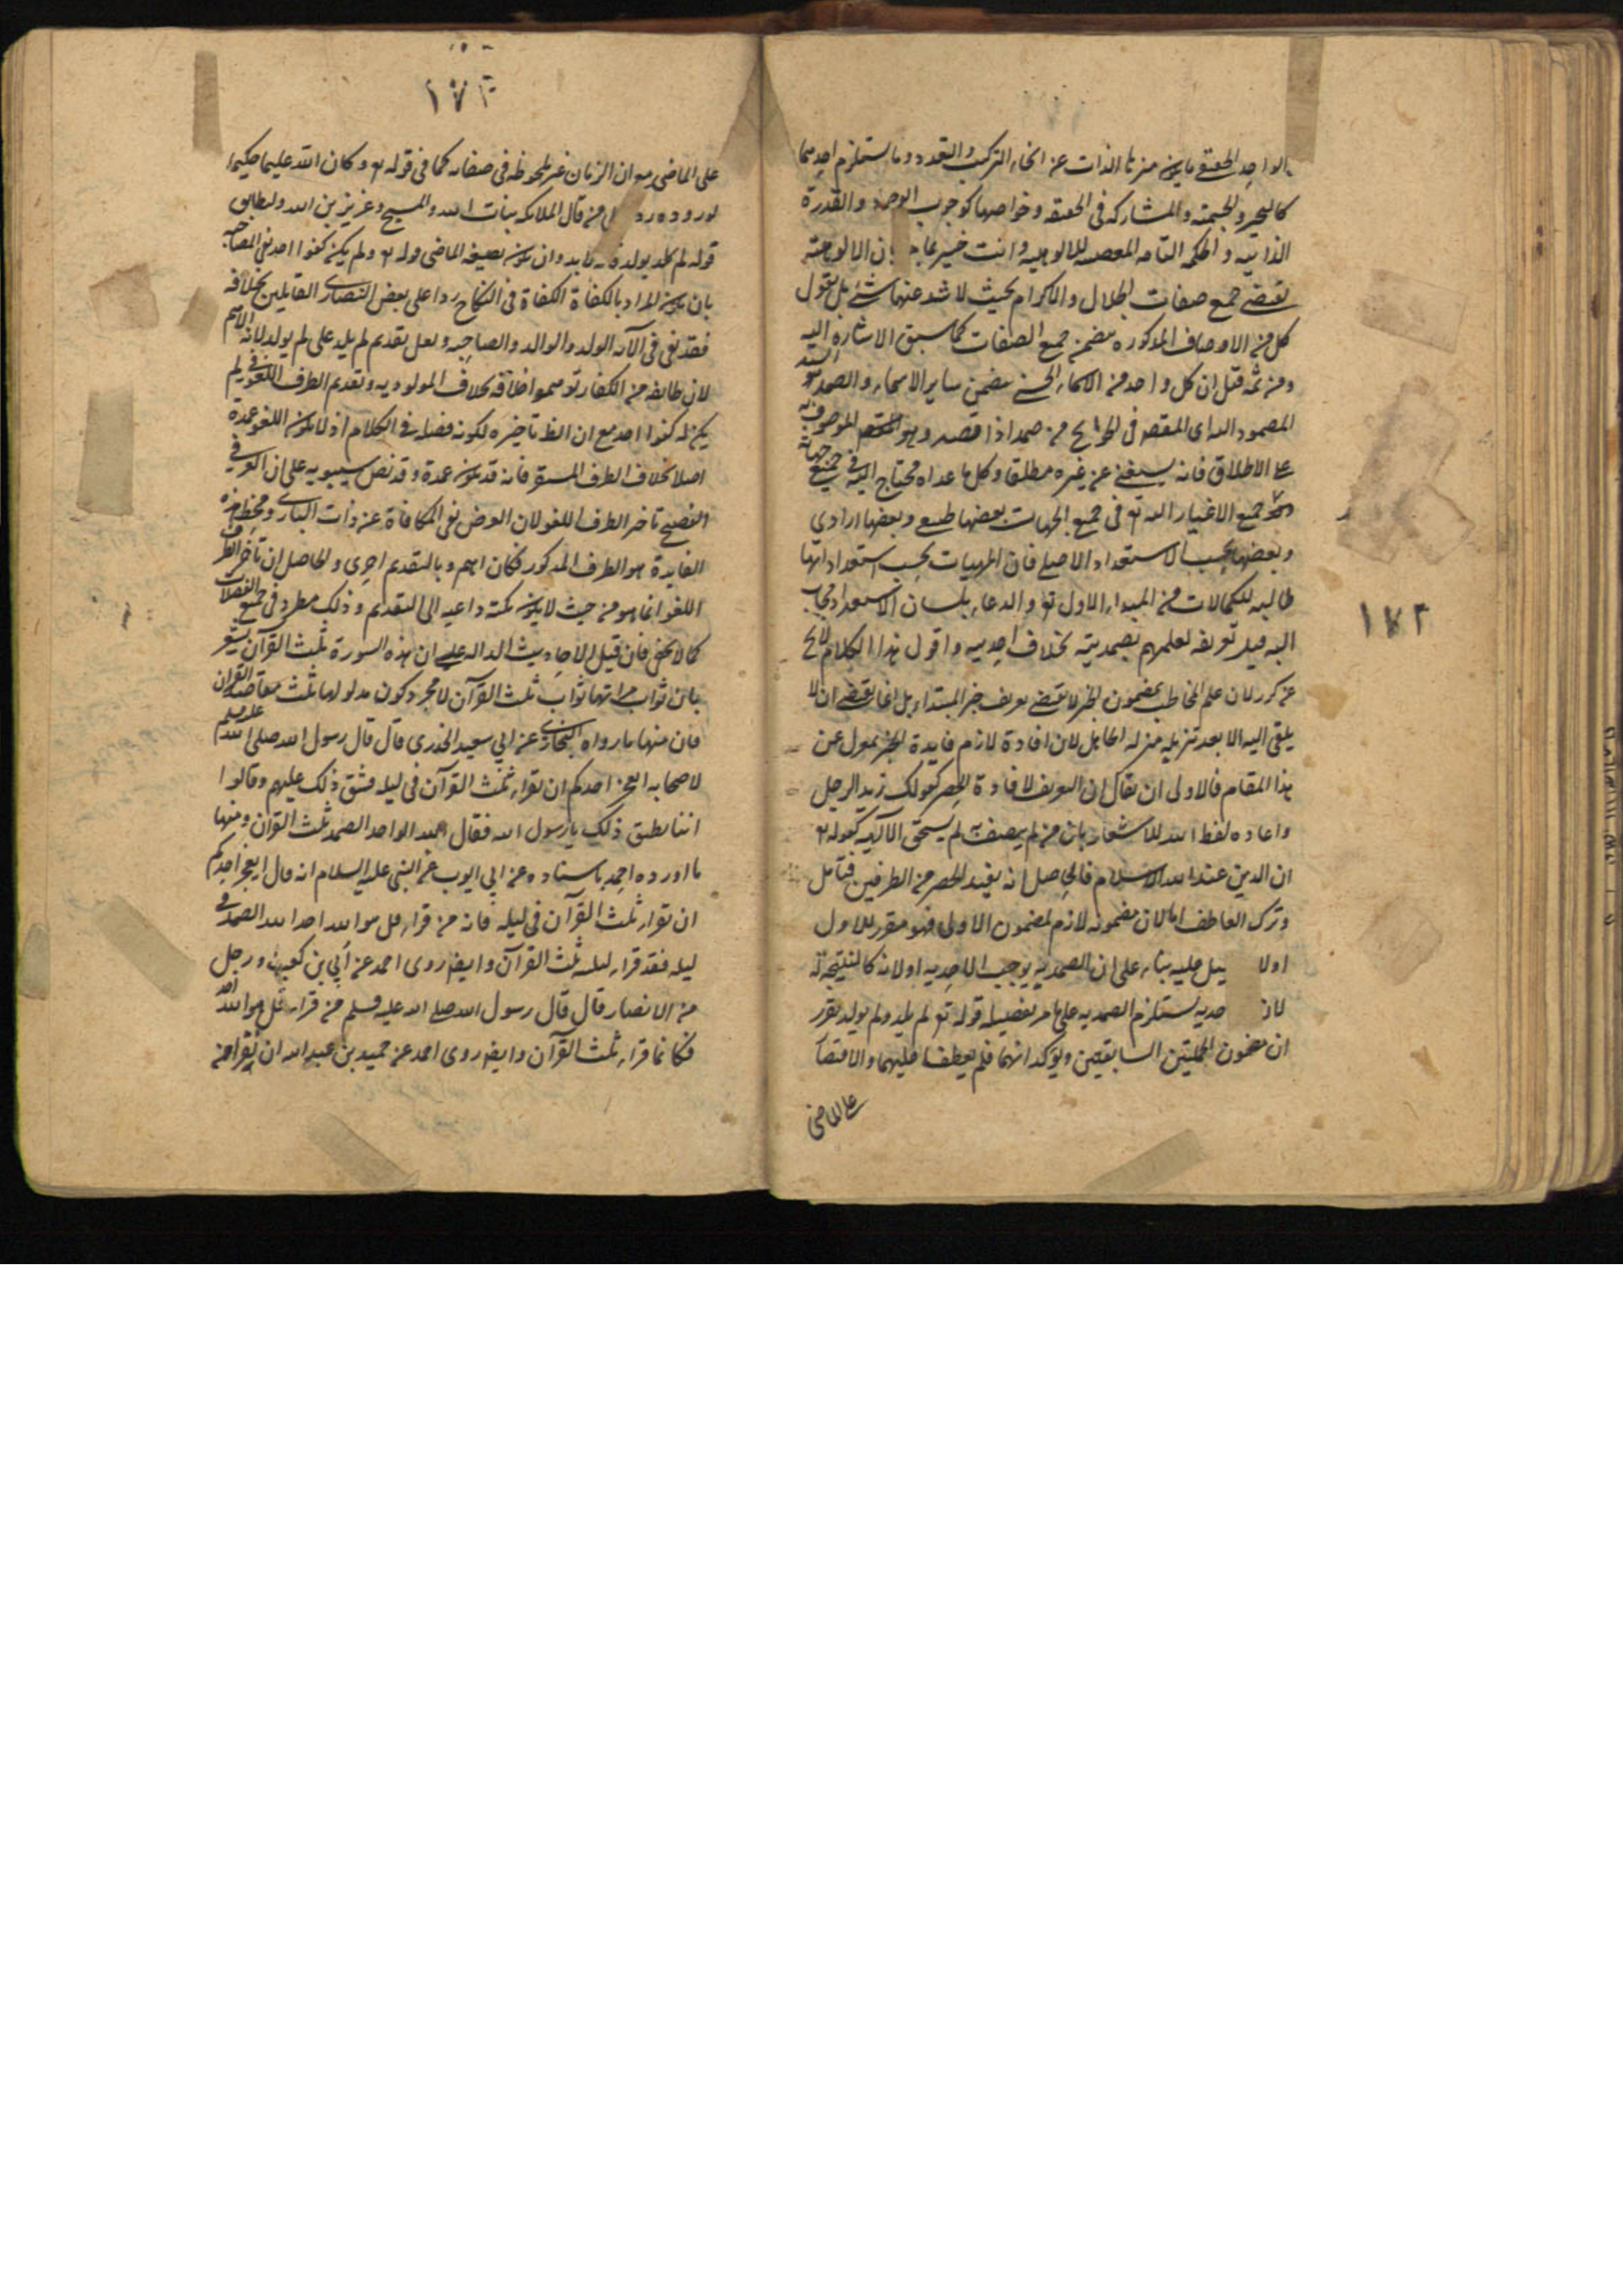 الواحد الحقيقي ما يكون منزه الذات عن انحاء التركيب والتعدد وما يستلزم احدهما
كالتحيز والجسمية والمشاركة في الحقيقة وخواصها كوجوب الوجود والقدرة
الذاتية والحكمة التامة المقتضية للالوهية وانت خبير بما ان الالوهية
تقتضي جميع صفات الجلال والاكرام بحيث لا يشذ عنها شئ بل نقول
كل من الاوصاف المذكورة يتضمن جميع الصفات كما سبق الاشارة اليه
ومن ثمة قيل ان كل واحد من الاسماء الحسنى يتضمن ساير الاسماء والصمد السيد
المصمود اليه اى المقصود فى الحوايج من صمد اذا قصد وهو الموصوف به
على الاطلاق فانه يستغنى عن غيره مطلقا وكل ما عداه محتاج اليه فى جميع جهاته
جميع الاغيار اليه تع فى جميع الجهات بعضها طبيعى وبعضها ارادي
وبعضها بحسب الاستعداد الاصلى فان المهيات بحسب استعداداتها
طالبه للكمالات من المبداء الاول تع والدعاء بلسان الاستعداد مجاب
البته قيل تعريفه لعلمهم بصمديته بخلاف احديته واقول هذا الكلام لا يخ
عن كدر لان علم المخاطب بمضمون الخبر لا يقتضي تعريف خبر المبتداء بل انما يقتضى ان لا
يلقى اليه الا بعد تنزيله منزلة الجاهل لان افادة لازم فايدة الخبر بمعزل عن
هذا المقام فالاولى ان يقال ان التعريف لافادة الحصر كقولك زيد الرجل
واعاده لفظ الله للاشعار بان من لم يتصف به لم يستحق الالهية كقوله تع
ان الدين عند الله الاسلام فالحاصل انه يفيد الحصر من الطرفين فتأمل
وترك العاطف اما لان مضمونه لازم لمضمون الاولى فهو مقرر للاول
اولا عليه بناء على ان الصمديه يوجب الاحديه اولانه كالنتيجة له
لان حديه يستلزم الصمديه على ما مر تفصيله قوله تع لم يلد ولم يولد يقرر
ان مضمون الجملتين السابقتين ويؤكد انهما فلم يعطف عليهما والاقتصار
على الماضى
١٧٢
١٧٢
على الماضى مع ان الزمان غير ملحوظ فى صفاته كما فى قوله تع وكان الله عليما حكيما
لوروده رد من قال الملائكه بنات الله والمسيح وعزير بن الله وليطابق
قوله لم يلد يولد وان يكون بصيغة الماضى وله تع ولم يكن كفوا احد نفى المصاحبه
بان يكون المراد بالكفاءة الكفاءة فى النكاح ردا على بعض النصارى القايلين بخلافه
فقد نفى فى الآيه الولد والوالد والصاحبه ولعل تقديم لم يلد على لم يولد لانه الاهم
لان طايفه من الكفار توهموا خلافه بخلاف المولوديه وتقديم الظرف اللغو فى لم
يكن له كفوا احد مع ان الظ تاخيره لكونه فضله فى الكلام اذ لا يكون اللغو عمدة
اصلا بخلاف الظرف المستقر فانه قد يكون عمدة وقد نص سيبويه على ان العربي
الفصيح تاخر الظرف اللغو لان الغرض نفى المكافاة عن ذات البارى ومحط هذه
الفايدة هو الظرف المذكور فكان اهم وبالتقديم احرى والحاصل ان تاخر الظرف
اللغو انما هو من حيث لا يكون نكتة داعيه الى التقديم وذلك مطرد فى جميع الفضلات
كما لا يخفى فان قيل الاحاديث الداله على ان هذه السورة ثلث القرآن يشعر
بان ثواب قراءتها ثواب ثلث القرآن لا مجرد كون مدلولها ثلث مقاصد القران
فان منها ما رواه البخارى عن ابي سعيد الخدرى قال قال رسول الله صلى الله عليه وسلم
لاصحابه ايعجز احدكم ان يقراء ثلث القرآن فى ليله فشق ذلك عليهم وقالوا
اننا يطيق ذلك يا رسول الله فقال الله الواحد الصمد ثلث القران ومنها
ما اورده احمد باسناده عن ابي ايوب عن النبى عليه السلام انه قال ايعجز احدكم
ان يقراء ثلث القرآن فى ليله فانه من قراء قل هو الله احد الله الصمد فى
ليله فقد قراء ليلته ثلث القرآن وايضا روى احمد عن ابي بن كعب او رجل
من الانصار قال قال رسول الله صلى الله عليه وسلم من قراء قل هو الله احد
فكانما قراء ثلث القرآن وايضا روى احمد عن حميد بن عبد الله ان نفرا من